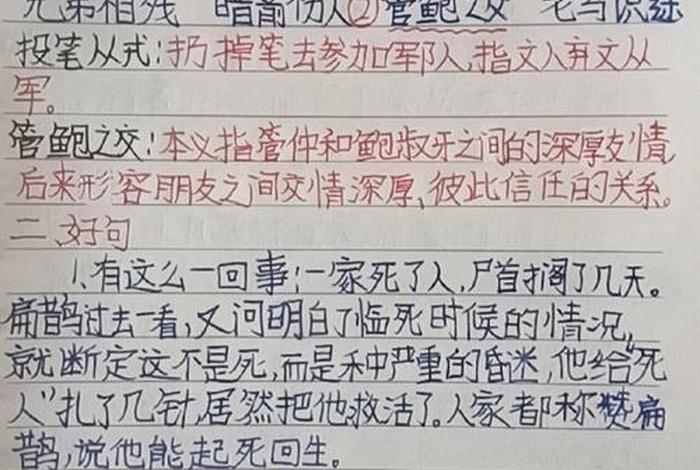 兄弟相残 暗箭伤人②管鲍之交 老马识途
投笔从戎:扔掉笔去参加军队人,指文人弃文从
军。
管鲍之交:本义指管仲和鲍叔牙之间的深厚友情,
后来形容朋友之间交情深厚,彼此信任的关系。
二、好句
1、有这么一回事:一家死了人,尸首搁了几天。
扁鹊过去一看,又问明白了临死时候的情况,
就断定这不是死,而是种严重的昏迷,他给“死
人”扎了几针,居然把他救活了。人家都称赞扁
鹊,说他能起死回生。